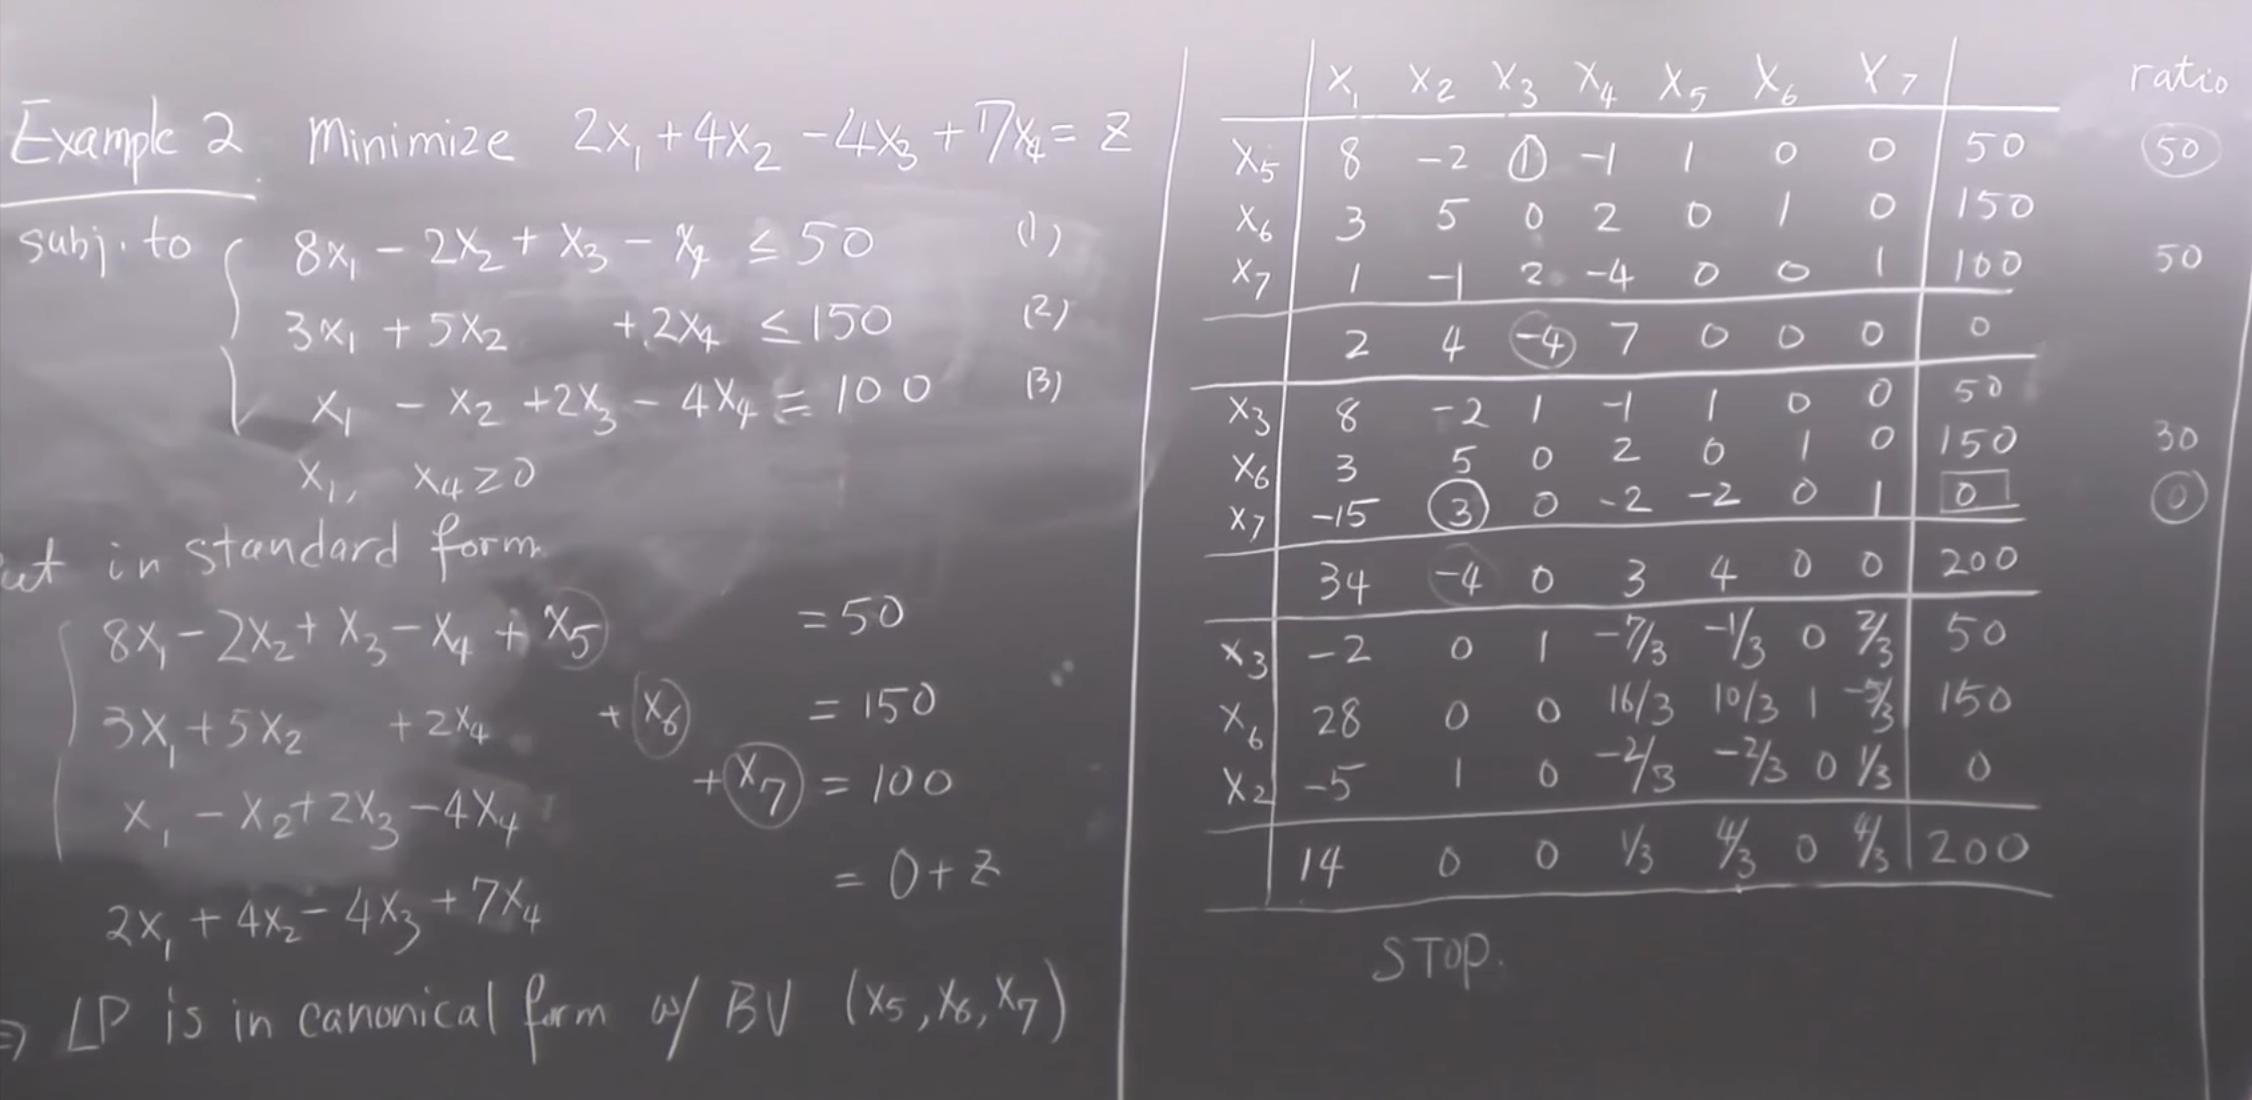 Example 2 Minimize 2x₁ + 4x₂ - 4x₃ + 7x₄ = z
subj. to 8x₁ - 2x₂ + x₃ - x₄ ≤ 50 (1)
3x₁ + 5x₂ + 2x₄ ≤ 150 (2)
x₁ - x₂ + 2x₃ - 4x₄ ≤ 100 (3)
x₁, x₄ ≥ 0
in standard form
8x₁ - 2x₂ + x₃ - x₄ + x₅ = 50
3x₁ + 5x₂ + 2x₄ + x₆ = 150
x₁ - x₂ + 2x₃ - 4x₄ + x₇ = 100
2x₁ + 4x₂ - 4x₃ + 7x₄ = 0 + z
⇒ LP is in canonical form w/ BV (x₅, x₆, x₇)
x₁ x₂ x₃ x₄ x₅ x₆ x₇ ratio
x₅ 8 -2 1 -1 1 0 0 50 50
x₆ 3 5 0 2 0 1 0 150
x₇ 1 -1 2 -4 0 0 1 100 50
2 4 -4 7 0 0 0 0
x₃ 8 -2 1 -1 1 0 0 50
x₆ 3 5 0 2 0 1 0 150 30
x₇ -15 3 0 -2 -2 0 1 0 0
34 -4 0 3 4 0 0 200
x₃ -2 0 1 -7/3 -1/3 0 2/3 50
x₆ 28 0 0 16/3 10/3 1 -5/3 150
x₂ -5 1 0 -2/3 -2/3 0 1/3 0
14 0 0 1/3 4/3 0 4/3 200
STOP.